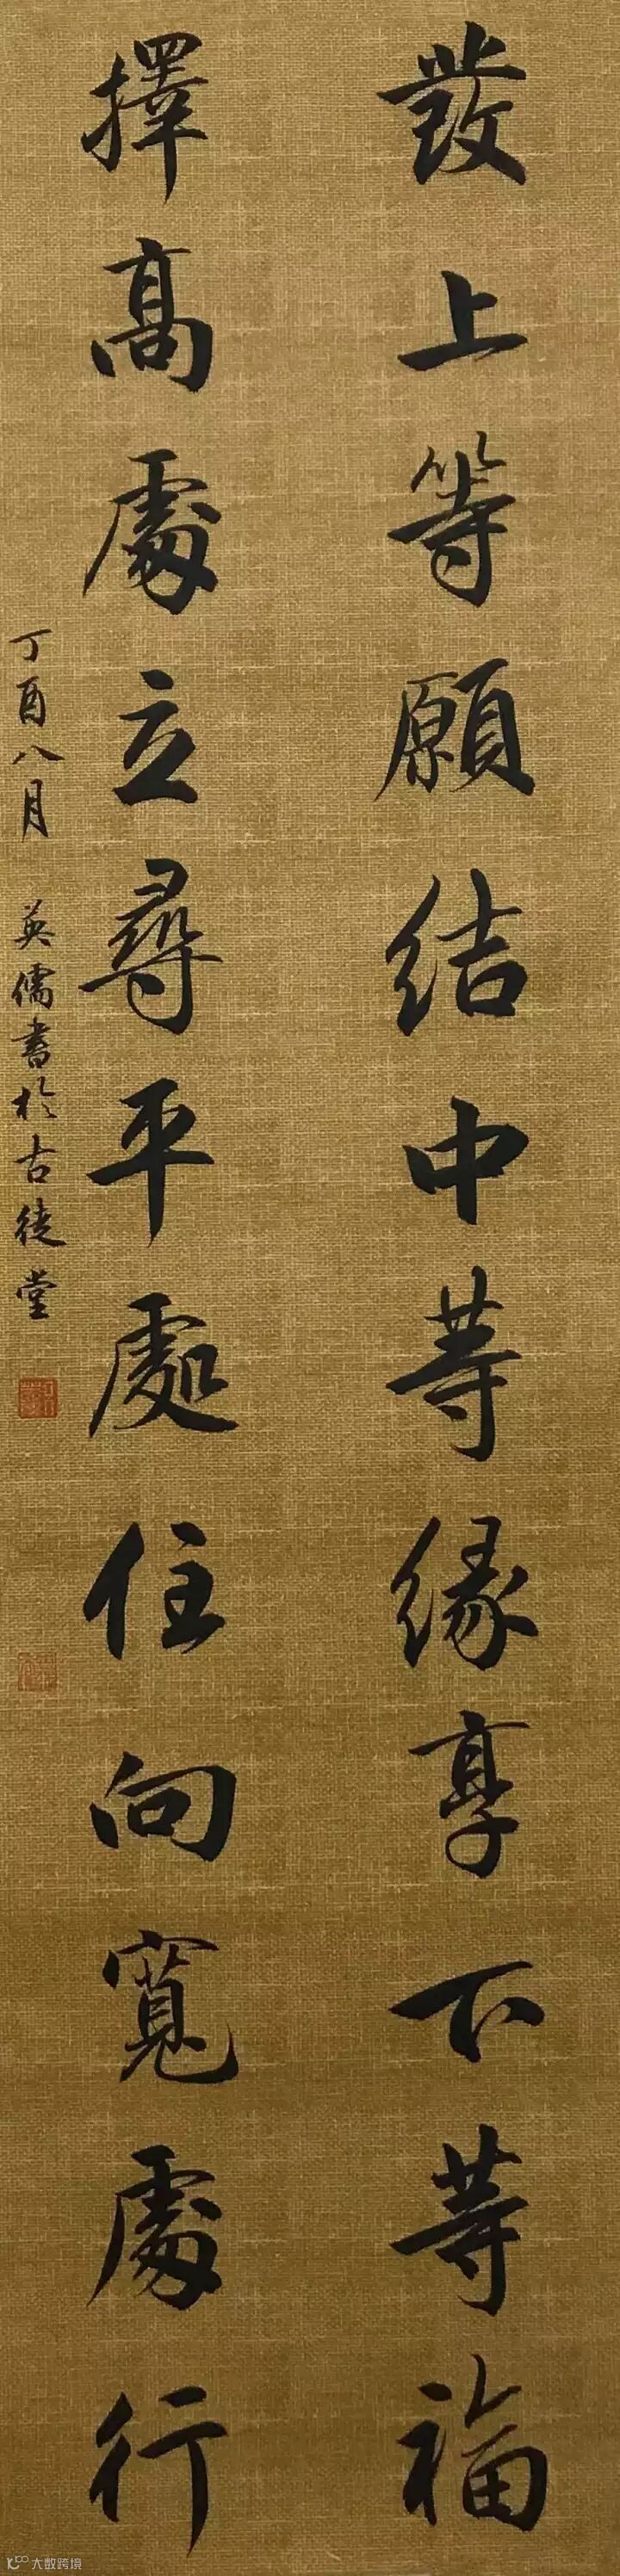 發上等願結中等緣享下等福
擇高處立尋平處住向寬處行
丁酉八月 英儒書於古徒堂
大数跨境